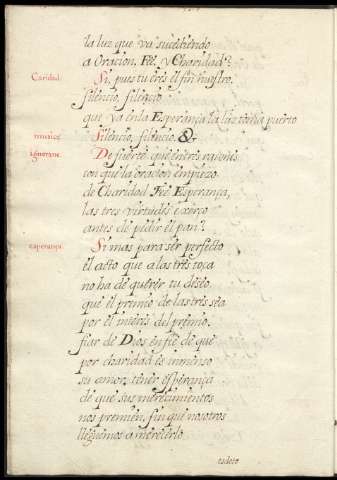 la luz que va sucediendo
a Oracion, Feé, y Charidad?
Caridad. Si, pues tu eres el fin nuestro.
silencio, silencio
que ya en la Esperança la luz toma puerto
musica Silencio, silencio. &
De suerte que en tres raçones
con que la oracion empieço
de Charidad Feé Esperança,
las tres virtudes exerço
antes de pedir el pan?
esperança. Si mas para ser perfecto
el acto que a las tres toca
no ha de querer tu deseo
que el premio de las tres sea
por el interes del premio.
fiar de Dios en fee de que
por charidad es inmenso
su amor, tener esperança
de que sus merecimientos
nos premien, sin que nosotros
lleguemos a merecerlo